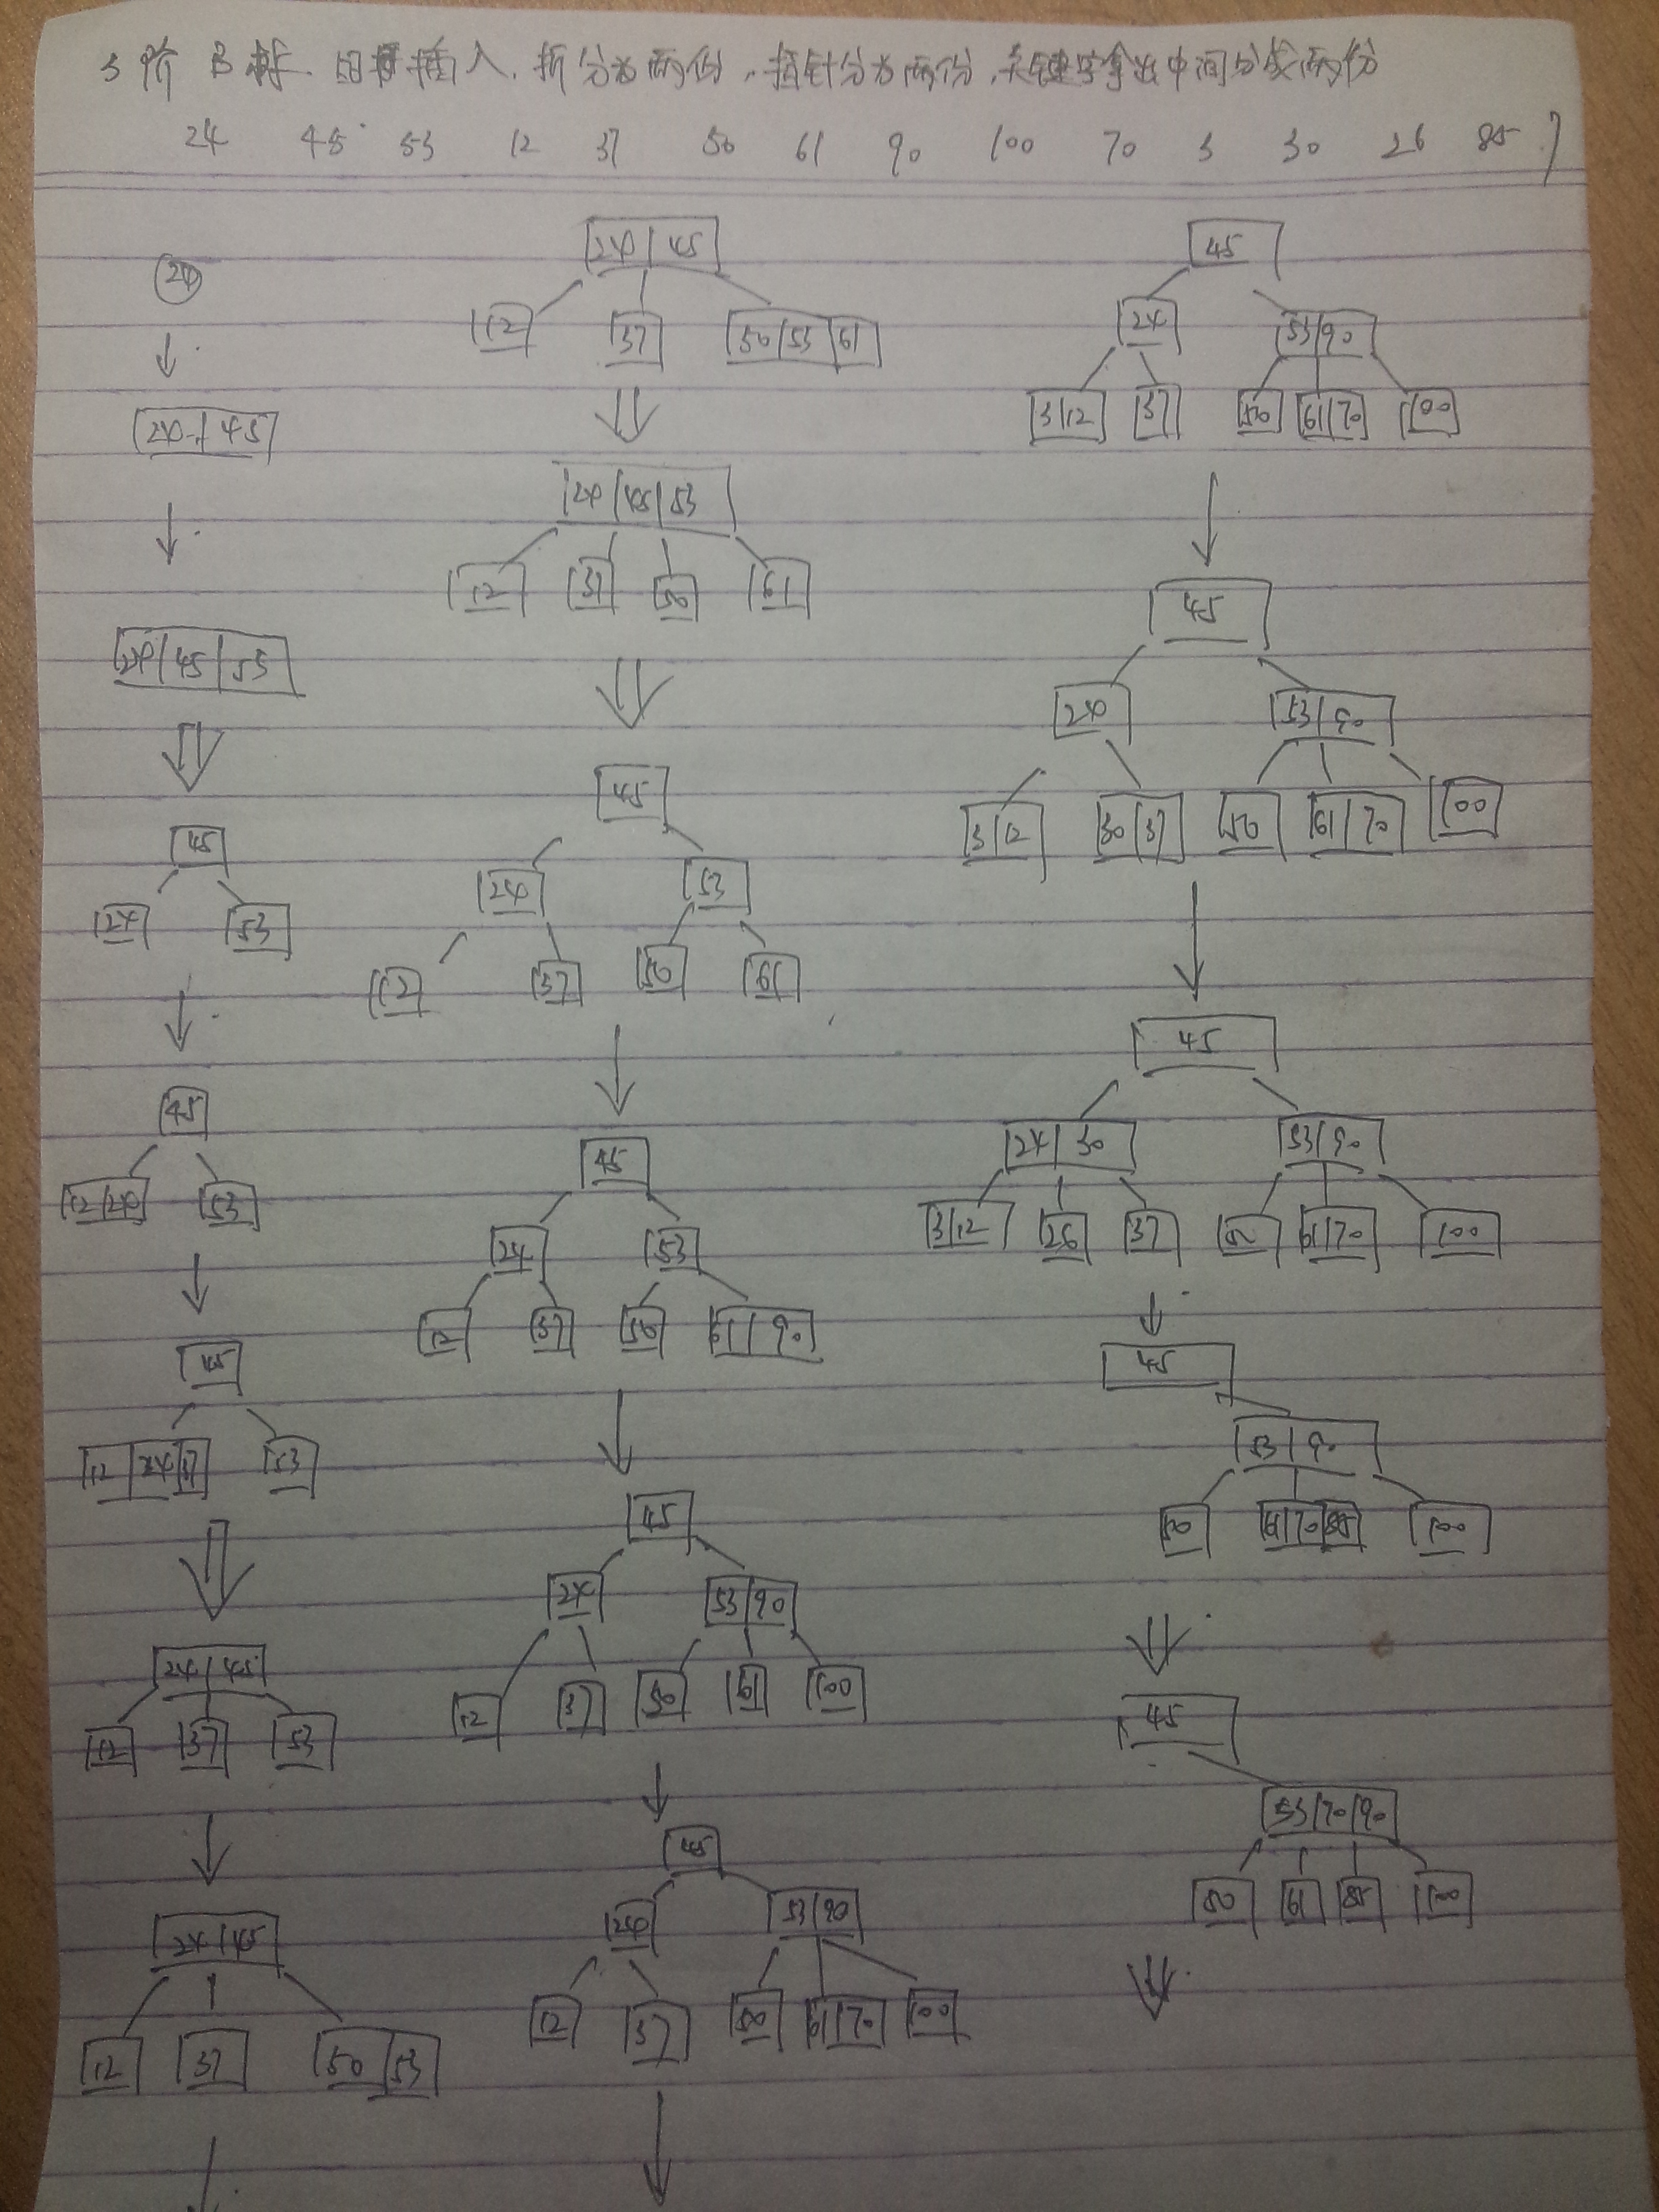 3阶 B树. 插入. 拆分为两份, 指针分为两份, 关键字拿出中间分成两份
24 45 53 12 37 50 61 90 100 70 3 30 26 85 7
24
24 45
24 45 53
45
24 53
45
12 24 53
45
12 24 37 53
24 45
12 37 53
24 45
12 37 50 53
24 45
12 37 50 53 61
24 45 53
12 37 50 61
45
24 53
12 37 50 61
45
24 53
12 37 50 61 90
45
24 53 90
12 37 50 61 100
45
24 53 90
12 37 50 61 70 100
45
24 53 90
3 12 37 50 61 70 100
45
24 53 90
3 12 30 37 50 61 70 100
45
24 30 53 90
3 12 26 37 50 61 70 100
45
53 90
50 61 70 85 100
45
53 70 90
50 61 85 100